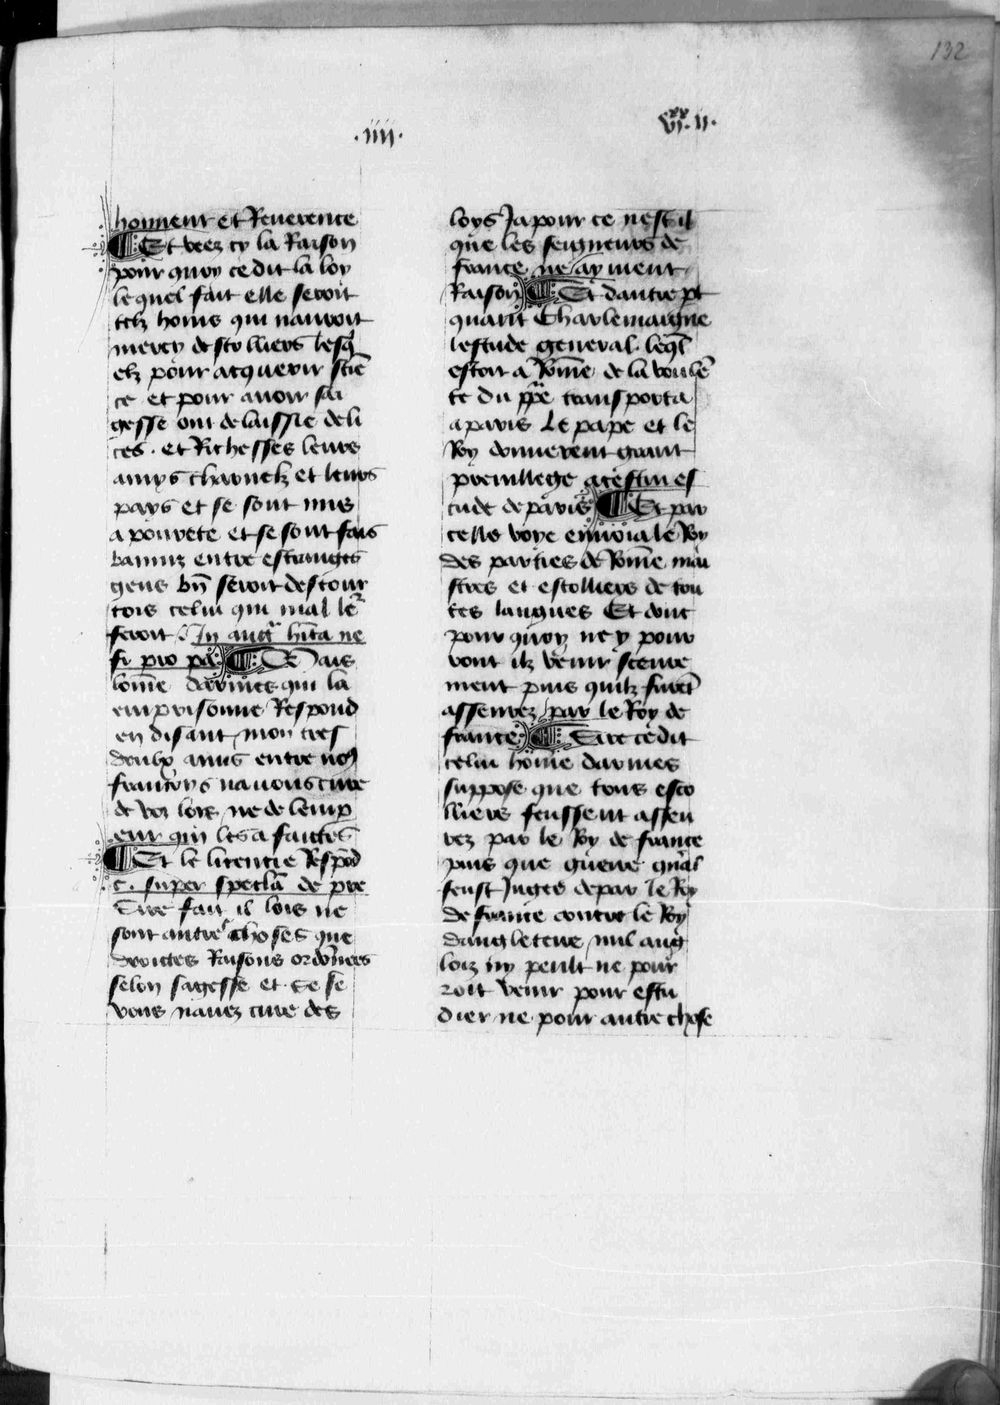 132
.iiii.
vi.xx ii.
honneur et Reuerence
¶ Et veez cy la Raison
pour quoy ce dit la loy
lequel fait elle seroit
telz homs qui nauroit
mercy destolliers lesqͥ
elz pour acquerir sciē
ce et pour auoir sai
gesse ont delaissie deli
ces . et Richesses leurs
amys charnelz et leurs
pays et se sont mis
a pourete et se sont fais
bannix entre estranges
gens bn̄ seroit destour
tois celui qui mal leᷣ
feroit . In auctᷓ hīta ne
fi pro pr̄e ¶ Mais
lomē darmes qui la
emprisonne Respond
en disant mon tres
doulx amis entre no9
francoys nauons cure
de voz lois ne de lemp̄
eur qui les a faictes
¶ Et le licencie Respōd
c. super specl̄a de pre
Sire fait il lois ne
sont autre choses que
droictes Raisons ordōnees
selon sagesse et se se
vous nauez cure des
loys Ja pour ce nest il
que les seigneurs de
france ne ayment
Raison ¶ Et dautre pt
quant Charlemaigne
lestude general leql̄
estoit a Romē de la voulē
te du pp̄e transporta
a paris Le pape et le
Roy donnerent grant
preuillege a cestui es
tude de paris ¶ Et par
celle voye enuoia le Roy
des parties de Romē mai
stres et estolliers de tou
tes langues Et dont
pour quoy ne y pour
ront ilz venir seure
ment puis quilz furēt
asseurez par le Roy de
france ¶ Sire ce dit
celui homē darmes
suppose que tous esco
lliers feussent asseu
rez par le Roy de france
puis que guerre grāl
feust Jugee de par le Roy
de france contre le Roy
dangleterre nul ang
loiz ny peult ne pour
roit venir pour estu
dier ne pour autre chose